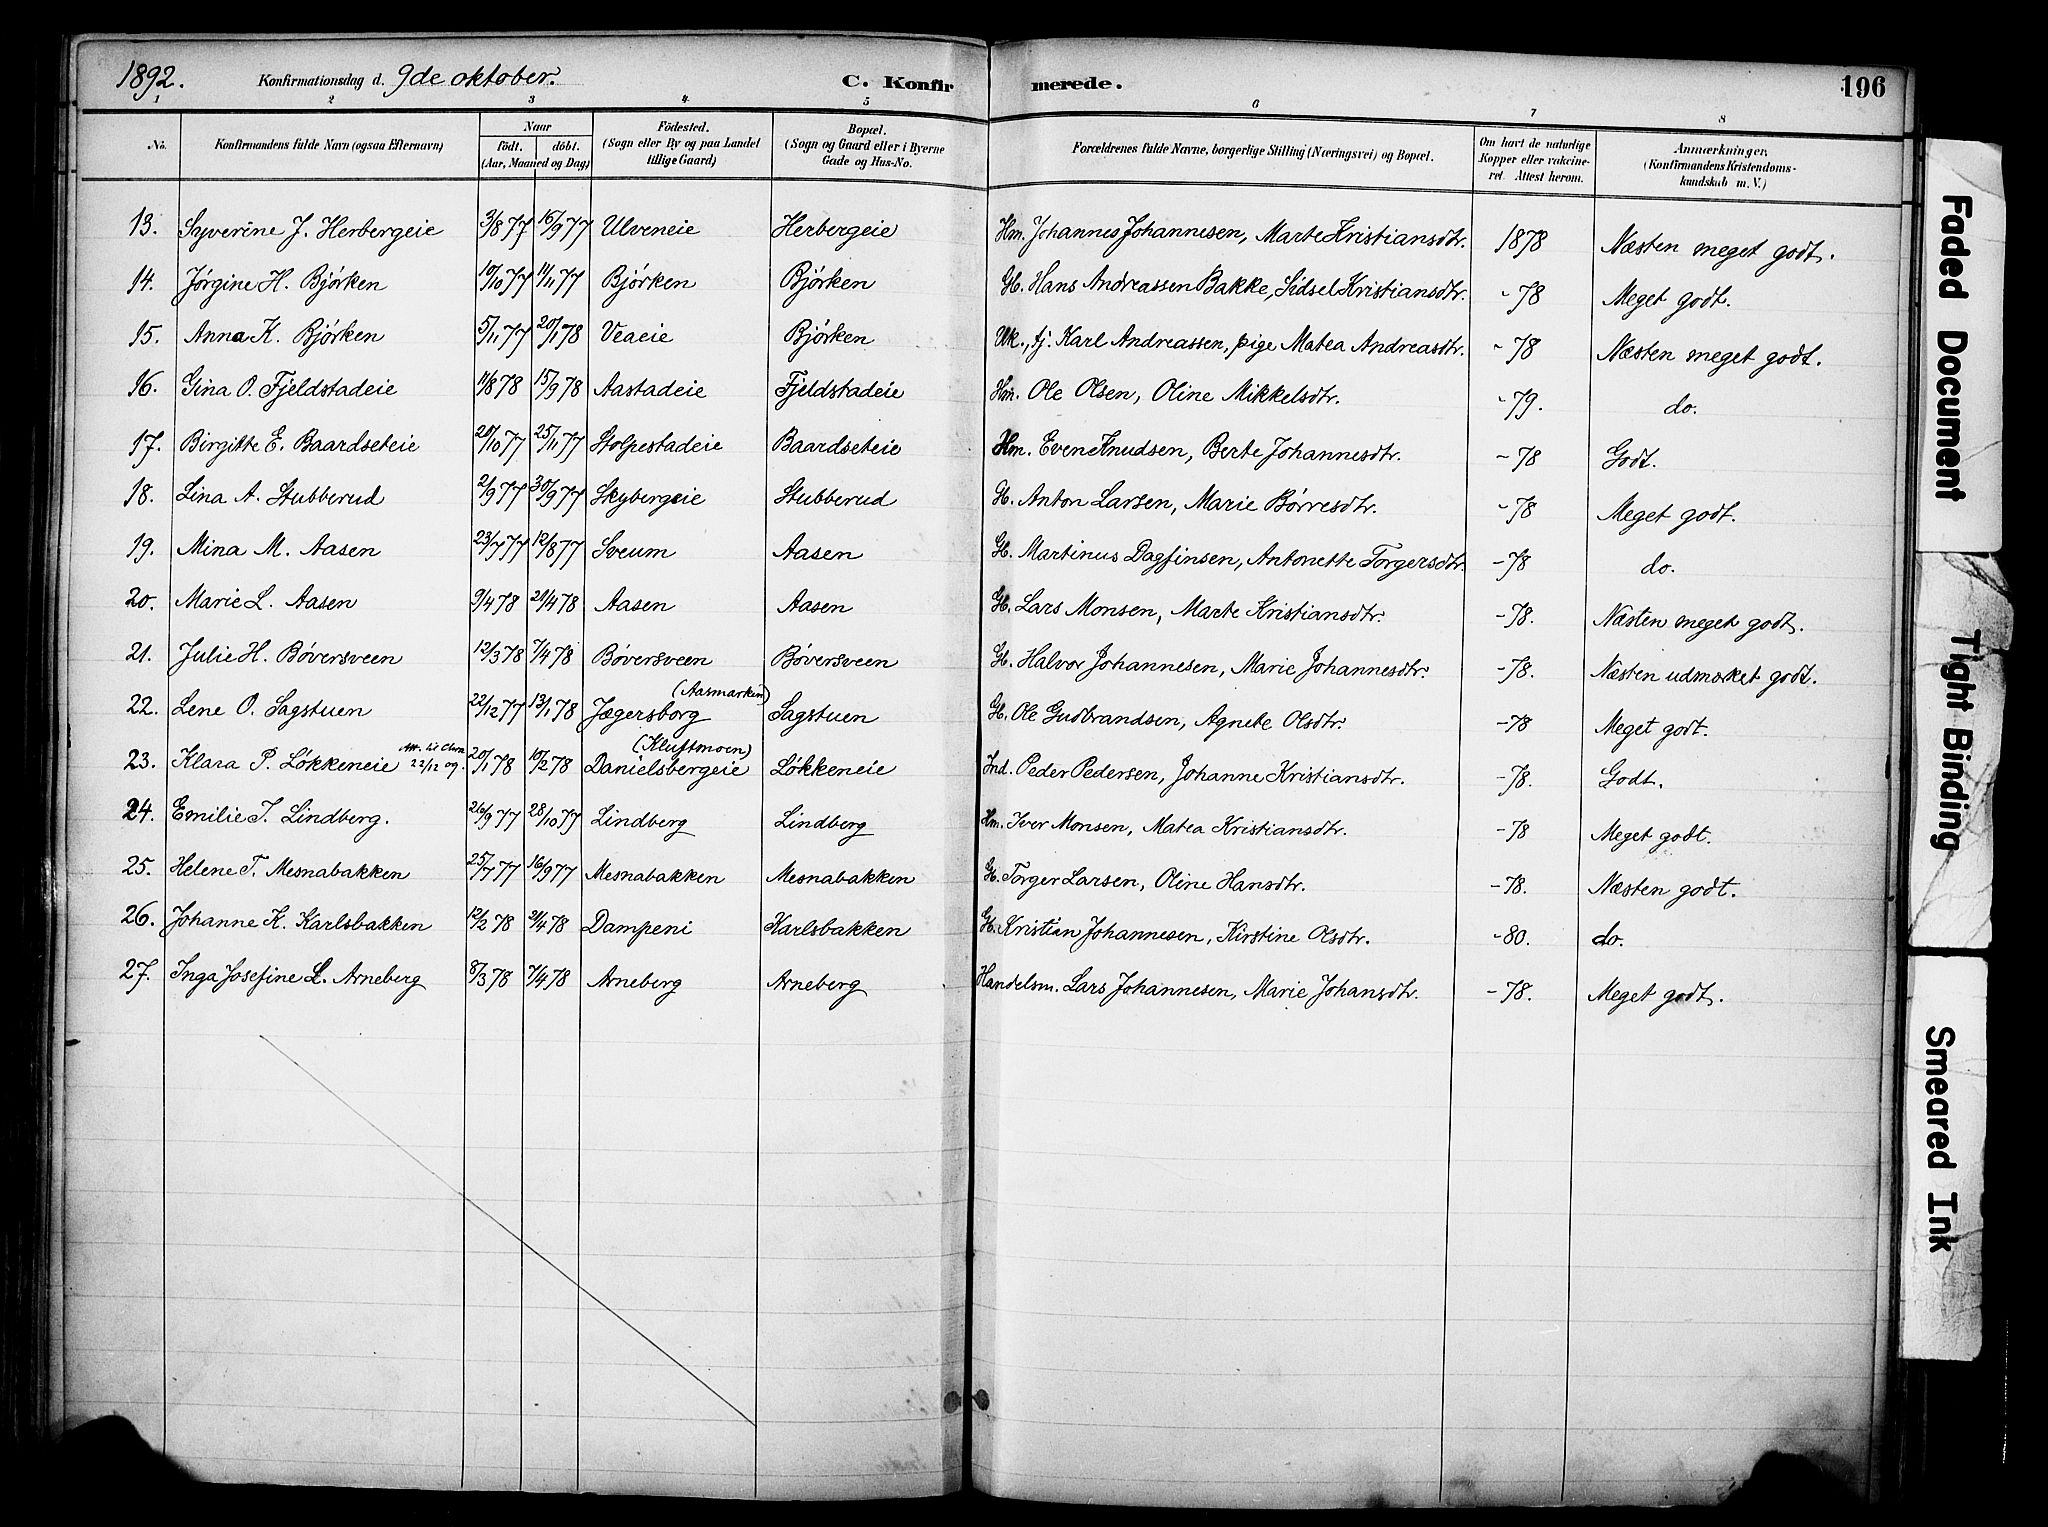 1892. Konfirmationsdag d. 9de oktober. C. Konfirmerede. 196
1 2 3 4 5 6 7 8
No. Konfirmandens fulde Navn (ogsaa Efternavn) Naar født. døbt. (Aar, Maaned og Dag) Födested. (Sogn eller By og paa Landet tillige Gaard) Bopæl. (Sogn og Gaard eller i Byerne Gade og Hus-No. Forældrenes fulde Navne, borgerlige Stilling (Næringsvei) og Bopæl. Om havt de naturlige Kopper eller vakcineret. Attest herom. Anmærkninger. (Konfirmandens Kristendomskundskab m. V.)
13. Syverine J. Herbergeie 3/8 77 16/9 77 Ulveneie Herbergeie Hm. Johannes Johannesen, Marte Kristiansdtr. 1878 Næsten meget godt.
14. Jørgine H. Bjørken 10/10 77 11/11 77 Bjørken Bjørken Gb. Hans Andreassen Bakke, Sidsel Kristiansdtr. - 78 Meget godt.
15. Anna K. Bjørken 5/11 77 20/1 78 Veaeie Bjørken Uk., tj. Karl Andreassen, pige Matea Andreasdtr. - 78 Næsten meget godt.
16. Gina O. Fjeldstadeie 11/8 78 15/9 78 Aastadeie Fjeldstadeie Hm. Ole Olsen, Oline Mikkelsdtr. - 79. do.
17. Birgitte E. Baardseteie 20/10 77 25/11 77 Stolpestadeie Baardseteie Hm. Even Knudsen, Berte Johannesdtr. - 78 Godt.
18. Lina A. Stubberud 2/9 77 30/9 77 Skybergeie Stubberud G. Anton Larsen, Marie Børresdtr. - 78 Meget godt.
19. Mina M. Aasen 23/7 77 12/8 77 Sveum Aasen Gb. Martinus Dagfinsen, Antonette Torgersdtr. - 78 do.
20. Marie L. Aasen 9/4 78 21/4 78 Aasen Aasen Gb. Lars Monsen, Marte Kristiansdtr. - 78. Næsten meget godt.
21. Julie H. Bøversveen 12/3 78 7/4 78 Bøversveen Bøversveen G. Halvor Johannesen, Marie Johannesdtr. - 78. Næsten udmærket godt.
22. Lene O. Sagstuen 22/12 77 13/1 78 Jægersborg (Aasmarken) Sagstuen Gb. Ole Gudbrandsen, Agnete Olsdtr. - 78 Meget godt.
23. Klara P. Løkkeneie 20/1 78 10/2 78 Danielsbergeie (Kluftmoen) Løkkeneie Ind. Peder Pedersen, Johanne Kristiansdtr. - 78. Godt.
24. Emilie I. Lindberg. 26/9 77 28/10 77 Lindberg Lindberg Hm. Iver Monsen, Matea Kristiansdtr. - 78 Meget godt.
25. Helene T. Mesnabakken 25/7 77 16/9 77 Mesnabakken Mesnabakken G. Torger Larsen, Oline Hansdtr. - 78. Næsten godt.
26. Johanne K. Karlsbakken 12/2 78 21/4 78 Dampeni Karlsbakken G. Kristian Johannesen, Kirstine Olsdtr. - 80. do.
27. Inga Josefine L. Arneberg 8/3 78 7/4 78 Arneberg Arneberg Handelsm. Lars Johannesen, Marie Johansdtr. - 78. Meget godt.
Faded Document
Tight Binding
Smeared Ink